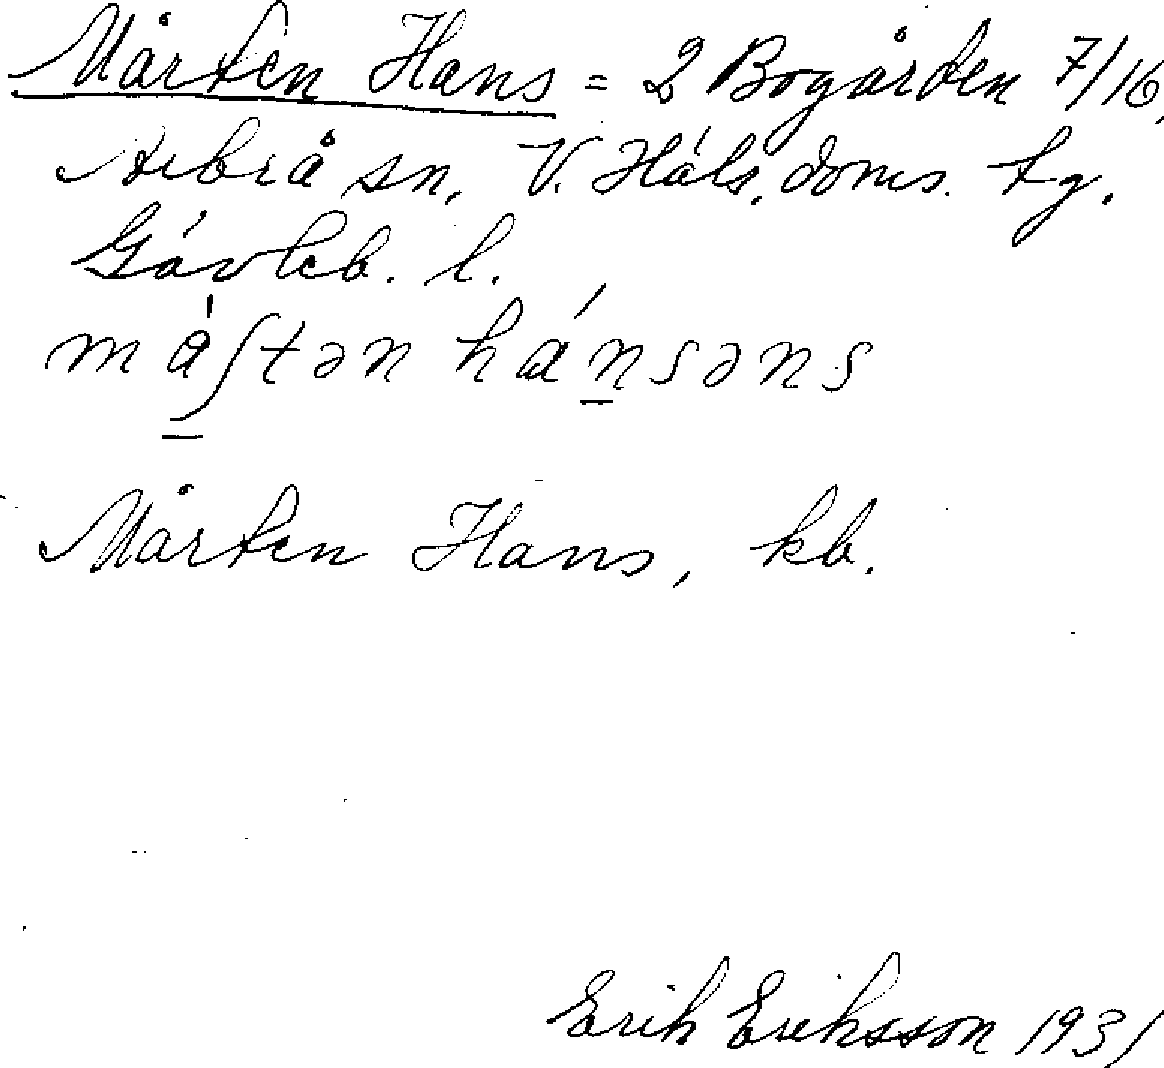 Mårten Hans = 2 Bogården 7/16,
Arbrå sn, V. Häls. doms. tg.
Gävleb. l.
mǻʃtən hánsəns
Mårten Hans, kb.
Erik Eriksson 1931